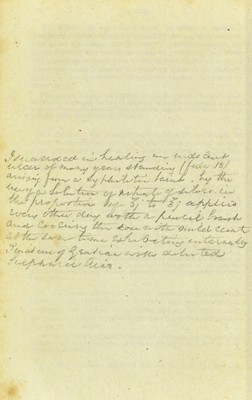 I succeeded in healing an indolent
ulcer of many years standing (July 18)
arising from a syphilitic taint, by the
use of a solution of Nitrate of silver in
the proportion of ʒj to ℥j applied
every other day with a pencil brush
and covering the sore with mild cerate
at the same time exhibiting internally
Tincture of Gentian with diluted
Sulphuric Acid.